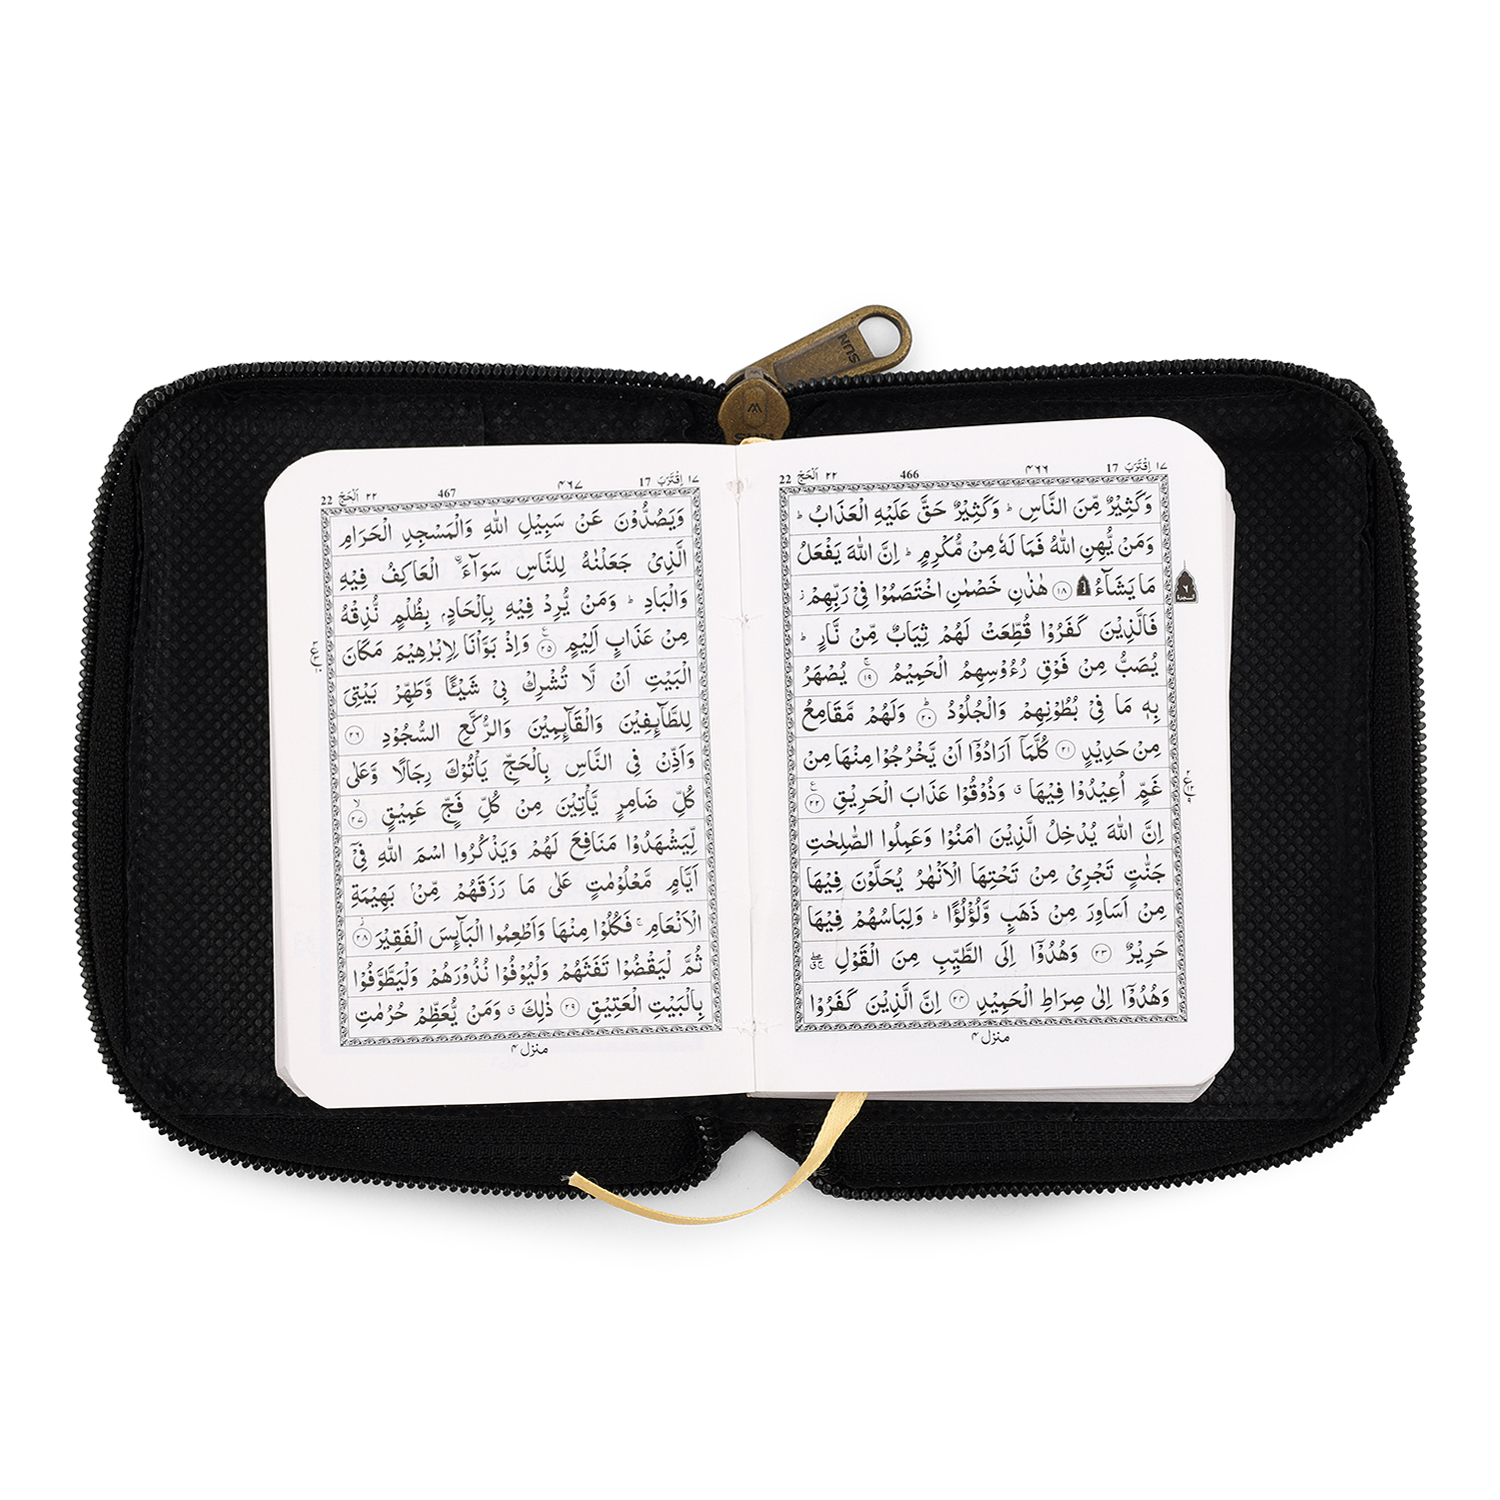 SUN
١٧ اِقْتَرَبَ 17
۴۶۶
466
٢٢ اَلْحَجّ 22
وَكَثِيْرٌ مِّنَ النَّاسِ ؕ وَكَثِيْرٌ حَقَّ عَلَيْهِ الْعَذَابُ ؕ
وَمَنْ يُّهِنِ اللّٰهُ فَمَا لَهٗ مِنْ مُّكْرِمٍ ؕ اِنَّ اللّٰهَ يَفْعَلُ
مَا يَشَآءُ ۩ ﴿١٨﴾ هٰذٰنِ خَصْمٰنِ اخْتَصَمُوْا فِيْ رَبِّهِمْ ز
فَالَّذِيْنَ كَفَرُوْا قُطِّعَتْ لَهُمْ ثِيَابٌ مِّنْ نَّارٍ ؕ
يُصَبُّ مِنْ فَوْقِ رُءُوْسِهِمُ الْحَمِيْمُ ﴿١٩﴾ يُصْهَرُ
بِهٖ مَا فِيْ بُطُوْنِهِمْ وَالْجُلُوْدُ ﴿٢٠﴾ وَلَهُمْ مَّقَامِعُ
مِنْ حَدِيْدٍ ﴿٢١﴾ كُلَّمَآ اَرَادُوْٓا اَنْ يَّخْرُجُوْا مِنْهَا مِنْ
غَمٍّ اُعِيْدُوْا فِيْهَا ق وَذُوْقُوْا عَذَابَ الْحَرِيْقِ ﴿٢٢﴾
اِنَّ اللّٰهَ يُدْخِلُ الَّذِيْنَ اٰمَنُوْا وَعَمِلُوا الصّٰلِحٰتِ
جَنّٰتٍ تَجْرِيْ مِنْ تَحْتِهَا الْاَنْهٰرُ يُحَلَّوْنَ فِيْهَا
مِنْ اَسَاوِرَ مِنْ ذَهَبٍ وَّلُؤْلُؤًا ؕ وَلِبَاسُهُمْ فِيْهَا
حَرِيْرٌ ﴿٢٣﴾ وَهُدُوْٓا اِلَى الطَّيِّبِ مِنَ الْقَوْلِ
وَهُدُوْٓا اِلٰى صِرَاطِ الْحَمِيْدِ ﴿٢٤﴾ اِنَّ الَّذِيْنَ كَفَرُوْا
منزل ۴
١٧ اِقْتَرَبَ 17
۴۶۷
467
٢٢ اَلْحَجّ 22
وَيَصُدُّوْنَ عَنْ سَبِيْلِ اللّٰهِ وَالْمَسْجِدِ الْحَرَامِ
الَّذِيْ جَعَلْنٰهُ لِلنَّاسِ سَوَآءَ ۨ الْعَاكِفُ فِيْهِ
وَالْبَادِ ؕ وَمَنْ يُّرِدْ فِيْهِ بِاِلْحَادٍۭ بِظُلْمٍ نُّذِقْهُ
مِنْ عَذَابٍ اَلِيْمٍ ﴿٢٥﴾ وَاِذْ بَوَّاْنَا لِاِبْرٰهِيْمَ مَكَانَ
الْبَيْتِ اَنْ لَّا تُشْرِكْ بِيْ شَيْـًٔا وَّطَهِّرْ بَيْتِيَ
لِلطَّآئِفِيْنَ وَالْقَآئِمِيْنَ وَالرُّكَّعِ السُّجُوْدِ ﴿٢٦﴾
وَاَذِّنْ فِي النَّاسِ بِالْحَجِّ يَاْتُوْكَ رِجَالًا وَّعَلٰى
كُلِّ ضَامِرٍ يَّاْتِيْنَ مِنْ كُلِّ فَجٍّ عَمِيْقٍ ﴿٢٧﴾
لِّيَشْهَدُوْا مَنَافِعَ لَهُمْ وَيَذْكُرُوا اسْمَ اللّٰهِ فِيْٓ
اَيَّامٍ مَّعْلُوْمٰتٍ عَلٰى مَا رَزَقَهُمْ مِّنْۢ بَهِيْمَةِ
الْاَنْعَامِ ۚ فَكُلُوْا مِنْهَا وَاَطْعِمُوا الْبَآئِسَ الْفَقِيْرَ ﴿٢٨﴾
ثُمَّ لْيَقْضُوْا تَفَثَهُمْ وَلْيُوْفُوْا نُذُوْرَهُمْ وَلْيَطَّوَّفُوْا
بِالْبَيْتِ الْعَتِيْقِ ﴿٢٩﴾ ذٰلِكَ ق وَمَنْ يُّعَظِّمْ حُرُمٰتِ
منزل ۴